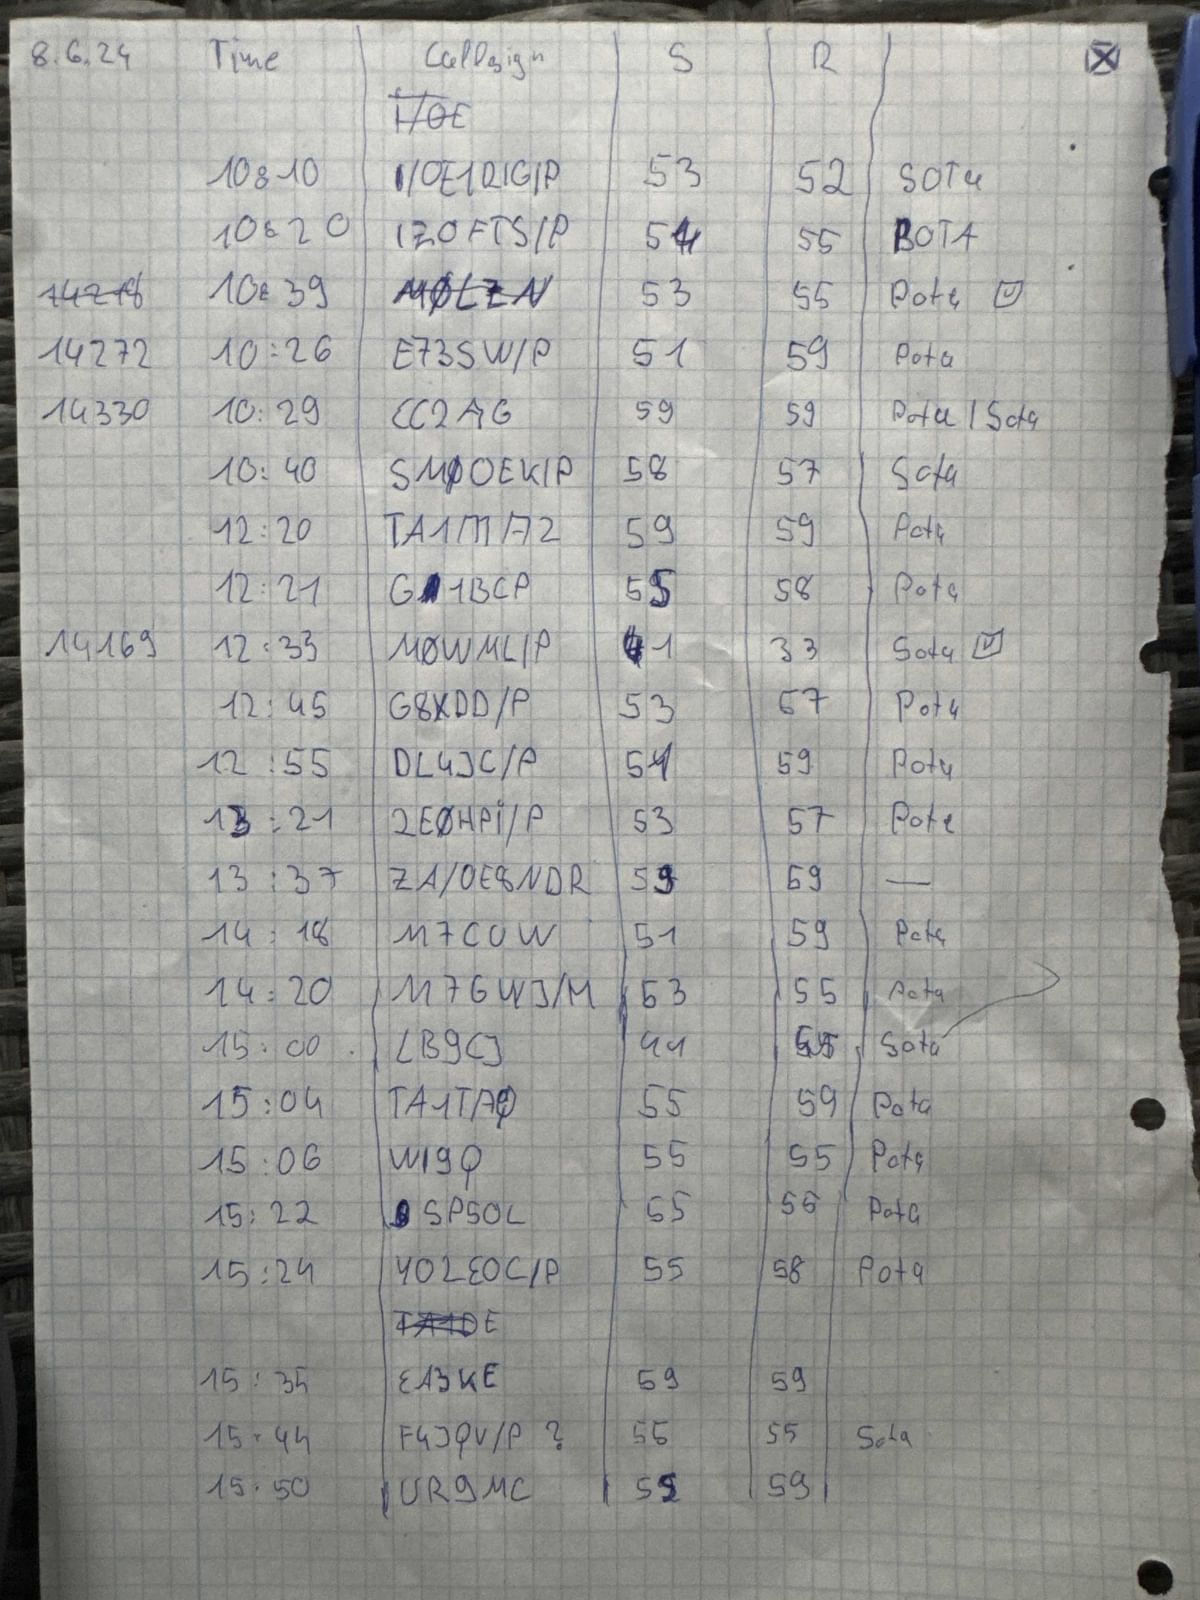 8.6.24 Time Callsign S R
I/OE
10:10 I/OE1RIG/P 53 52 SOTa
10:20 IZ0FTS/P 54 55 BOTA
14278 10:39 MØLZN 53 55 Pota
14272 10:26 E73SW/P 51 59 Pota
14330 10:29 EC2AG 59 59 Pota / Sota
10:40 SMØOEK/P 58 57 Sota
12:20 59 59 Pota
12:21 G 1BCP 55 58 Pota
14169 12:33 MØWML/P 41 33 Sota
12:45 G8XDD/P 53 57 Pota
12:55 DL4JC/P 54 59 Pota
13:21 2EØHPi/P 53 57 Pota
13:37 ZA/OE8NDR 59 59 —
14:18 M7COW 51 59 Pota
14:20 M7GWJ/M 53 55 Pota
15:00 LB9CJ 41 Sota
15:04 TA1TAQ 55 59 Pota
15:06 WI9Q 55 55 Pota
15:22 SP5OL 55 56 Pota
15:24 YO2EOC/P 55 58 Pota
TA1DE
15:35 EA3KE 59 59
15:44 F4JQV/P ? 55 55 Sota
15:50 UR9MC 55 59